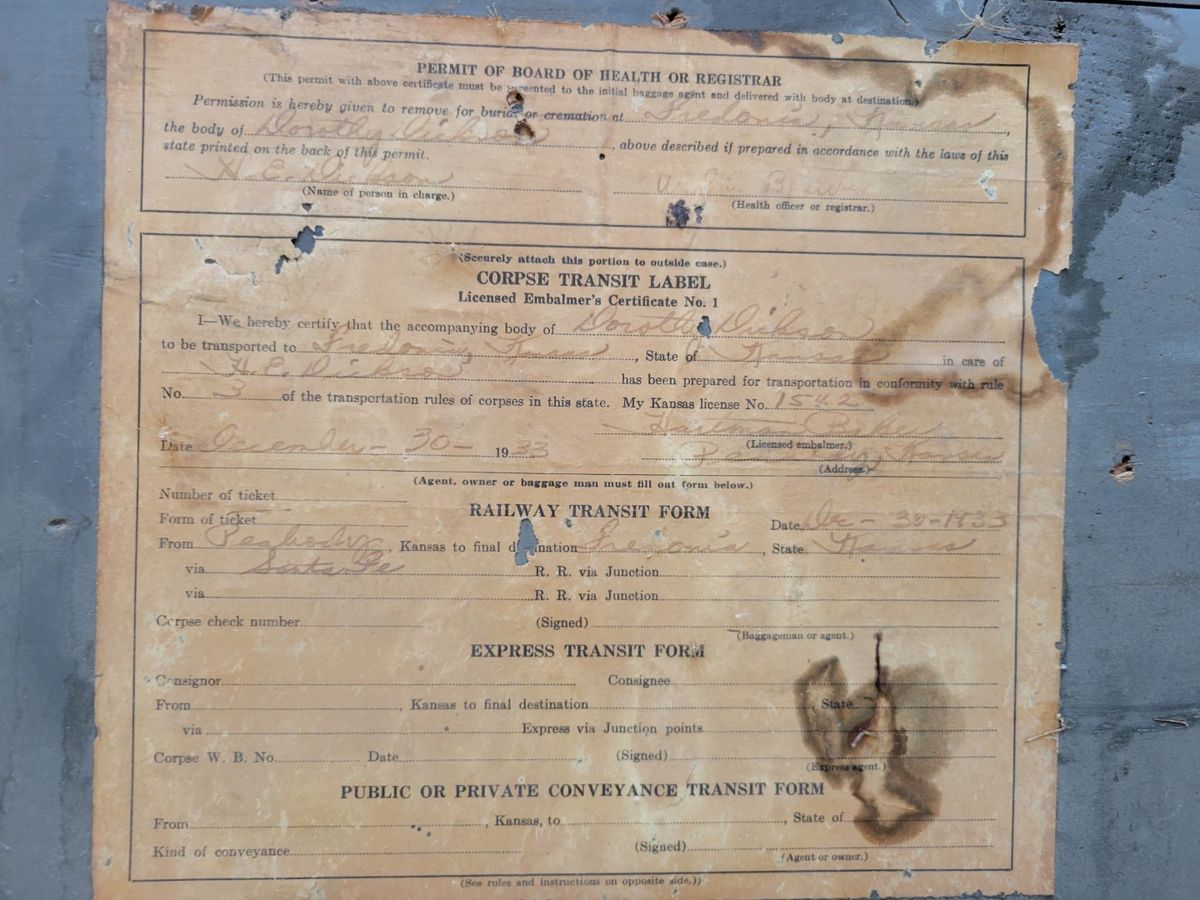 PERMIT OF BOARD OF HEALTH OR REGISTRAR
(This permit with above certificate must be presented to the initial baggage agent and delivered with body at destination.)
Permission is hereby given to remove for burial or cremation at Fredonia, Kansas,
the body of Dorothy Dickson, above described if prepared in accordance with the laws of this
state printed on the back of this permit.
H. E. Dickson
(Name of person in charge.) (Health officer or registrar.)
(Securely attach this portion to outside case.)
CORPSE TRANSIT LABEL
Licensed Embalmer's Certificate No. 1
I—We hereby certify that the accompanying body of Dorothy Dickson
to be transported to Fredonia, Kansas, State of Kansas in care of
H. E. Dickson has been prepared for transportation in conformity with rule
No. 3 of the transportation rules of corpses in this state. My Kansas license No. 1542
Baker
(Licensed embalmer.)
Date December - 30 - 1933 Peabody, Kansas
(Address.)
(Agent, owner or baggage man must fill out form below.)
Number of ticket
RAILWAY TRANSIT FORM
Form of ticket Date Dec - 30 - 1933
From Peabody, Kansas to final destination Fredonia, State Kansas
via Santa Fe R. R. via Junction
via R. R. via Junction
Corpse check number (Signed)
(Baggageman or agent.)
EXPRESS TRANSIT FORM
Consignor Consignee
From , Kansas to final destination , State
via Express via Junction points
Corpse W. B. No. Date (Signed)
(Express agent.)
PUBLIC OR PRIVATE CONVEYANCE TRANSIT FORM
From , Kansas, to , State of
Kind of conveyance (Signed)
(Agent or owner.)
(See rules and instructions on opposite side.)